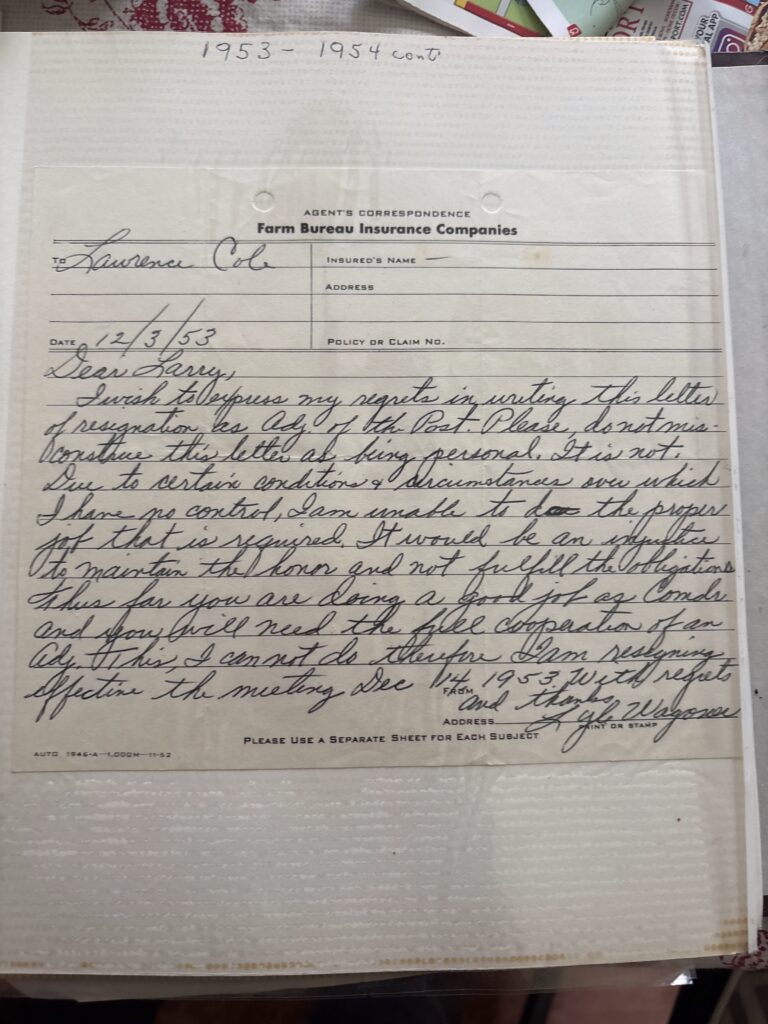 1953 - 1954 cont
AGENT'S CORRESPONDENCE
Farm Bureau Insurance Companies
TO Lawrence Cole
INSURED'S NAME —
ADDRESS
DATE 12/3/53
POLICY OR CLAIM NO.
Dear Larry,
I wish to express my regrets in writing this letter
of resignation as Adj. of th Post. Please, do not mis-
construe this letter as being personal. It is not.
Due to certain conditions & circumstances over which
I have no control, I am unable to do the proper
job that is required. It would be an injustice
to maintain the honor and not fulfill the obligations
Thus far you are doing a good job as Comdr.
and you will need the full cooperation of an
Adj. This, I can not do therefore I am resigning
effective the meeting Dec 14, 1953 With regrets
FROM and thanks
ADDRESS Lyle
PRINT OR STAMP
PLEASE USE A SEPARATE SHEET FOR EACH SUBJECT
AUTO 1946-A—1,000M—11-52